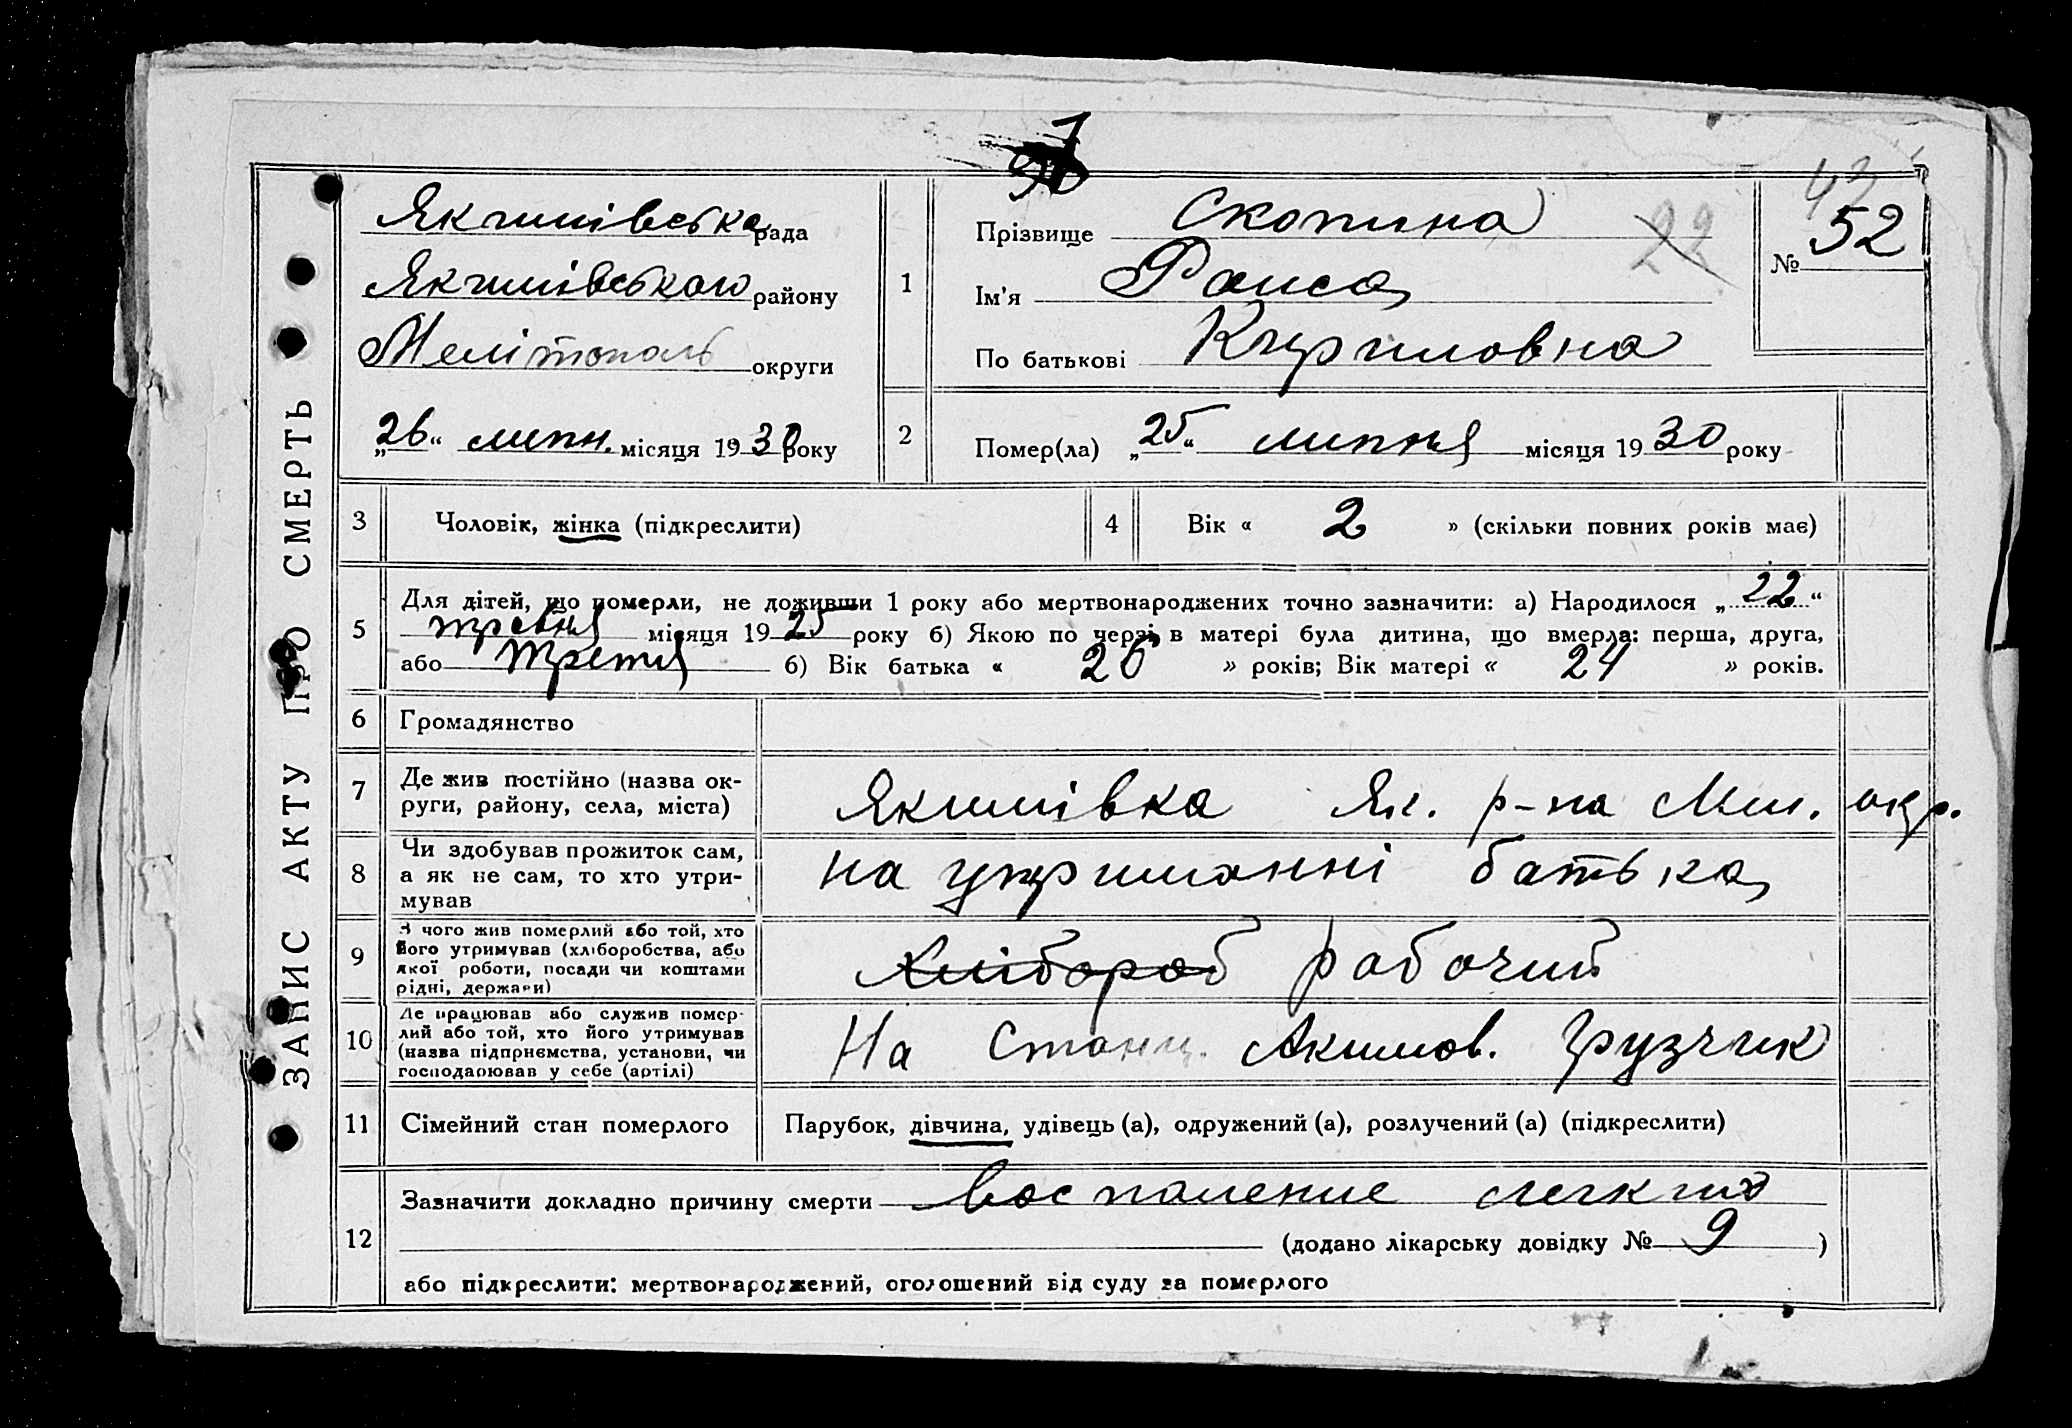 1
42
52
№
22
ЗАПИС АКТУ ПРО СМЕРТЬ
Якимівська рада
Якимівського району
Мелітополь округи
„26“ липн. місяця 1930 року
1
Прізвище Скопина
Ім'я Раиса
По батькові Кириловна
2
Помер(ла) „25“ липня місяця 1930 року
3 Чоловік, жінка (підкреслити)
4 Вік « 2 » (скільки повних років має)
5
Для дітей, що померли, не доживши 1 року або мертвонароджених точно зазначити: а) Народилося „22“
травня місяця 1925 року б) Якою по черзі в матері була дитина, що вмерла: перша, друга,
або третя б) Вік батька « 26 » років; Вік матері « 24 » років.
6 Громадянство
7 Де жив постійно (назва ок-
руги, району, села, міста)
Якимівка Як. р-на Мел. окр.
8 Чи здобував прожиток сам,
а як не сам, то хто утри-
мував
на утриманні батька
9 З чого жив померлий або той, хто
його утримував (хліборобства, або
якої роботи, посади чи коштами
рідні, держави)
Хлібороб рабочий
10 Де працював або служив помер-
лий або той, хто його утримував
(назва підприємства, установи, чи
господарював у себе (артілі)
На Станц. Акимов. Грузчик
11 Сімейний стан померлого
Парубок, дівчина, удівець (а), одружений (а), розлучений (а) (підкреслити)
12
Зазначити докладно причину смерти воспаление легких
(додано лікарську довідку № 9 )
або підкреслити: мертвонароджений, оголошений від суду за померлого